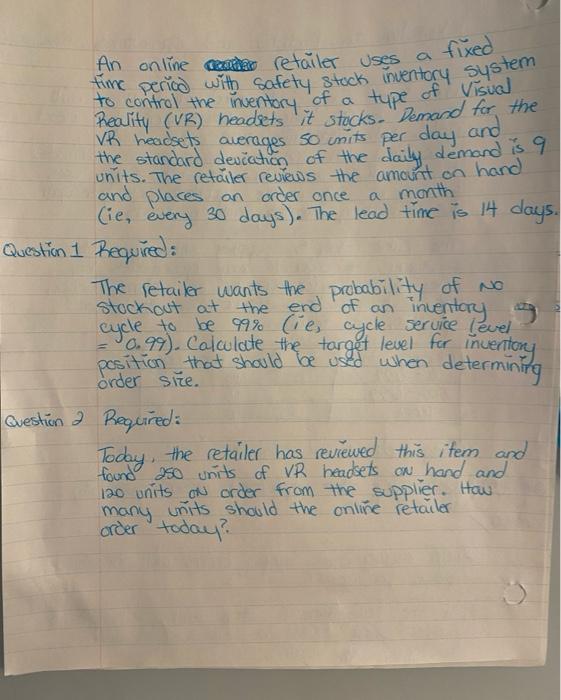 An online retailer uses a fixed
time period with safety stock inventory system
to control the inventory of a type of Visual
Reality (VR) headsets it stocks. Demand for the
VR headsets averages 50 units per day and
the standard deviation of the daily demand is 9
units. The retailer reviews the amount on hand
and places an order once a month
(ie, every 30 days). The lead time is 14 days.
Question 1 Required:
The retailer wants the probability of no
stockout at the end of an inventory
cycle to be 99% (ie, cycle service level
= 0.99). Calculate the target level for inventory
position that should be used when determining
order size.
Question 2 Required:
Today, the retailer has reviewed this item and
found 250 units of VR headsets on hand and
120 units on order from the supplier. How
many units should the online retailer
order today?